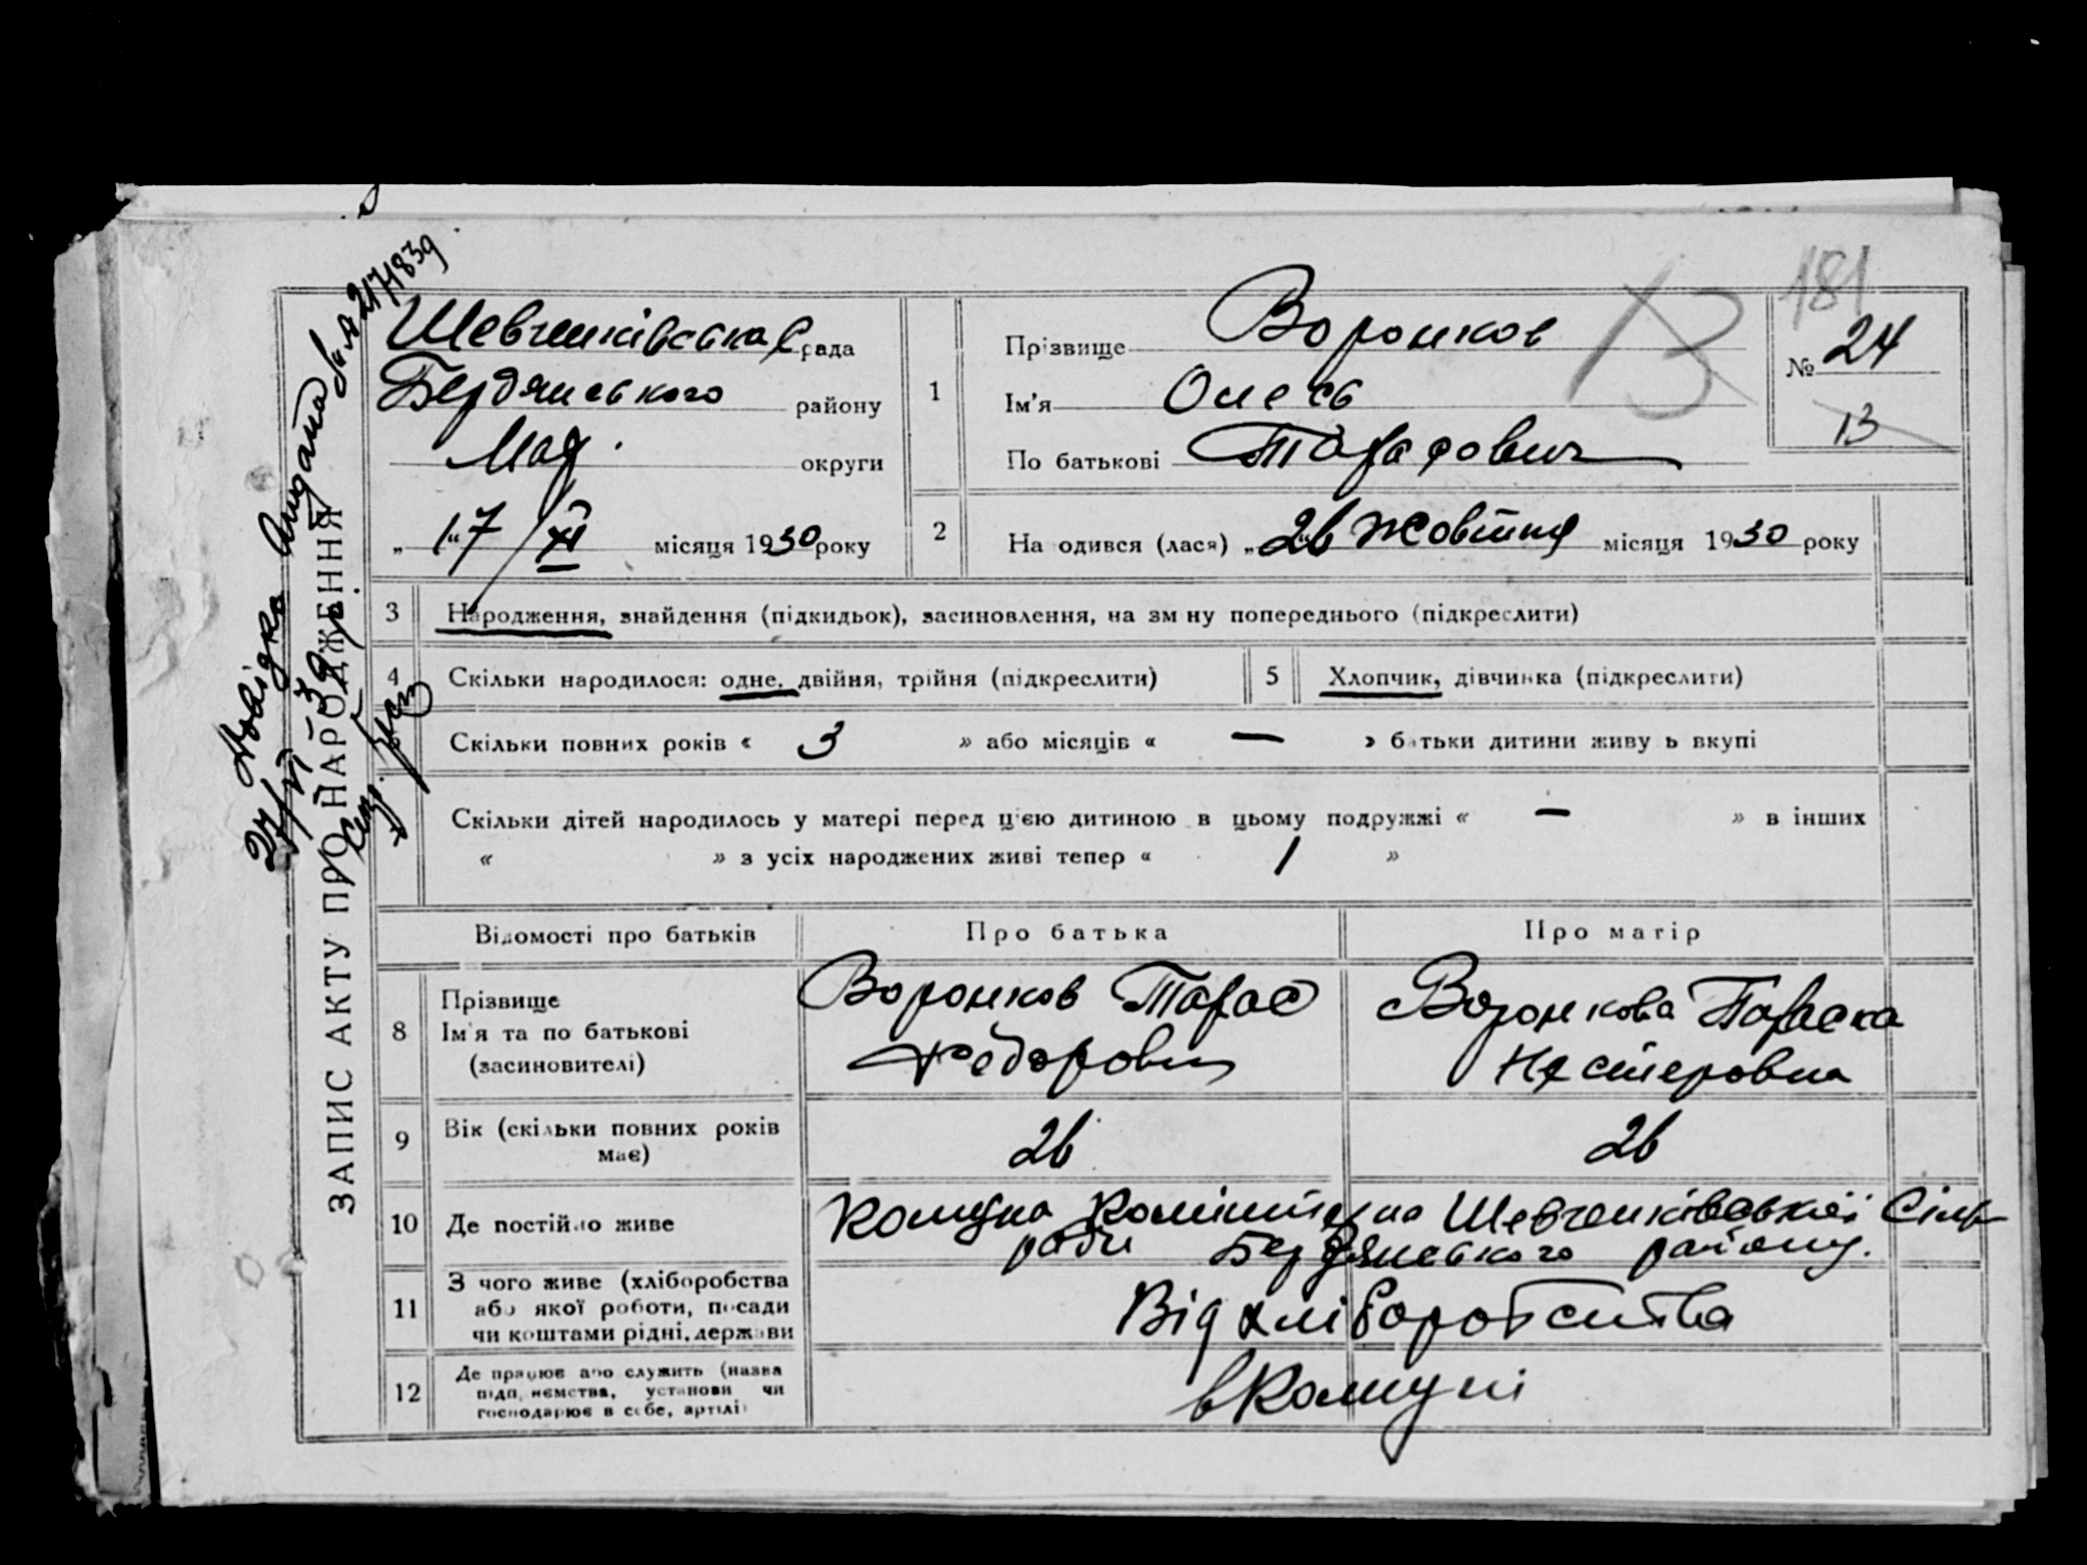 ЗАПИС АКТУ ПРО НАРОДЖЕННЯ
Довідка видана
27/VI-39 р.
№ 2171839
Шевченківська С рада
Бердянського району
округи
„17/XI“ місяця 1930 року
181
№ 24
13
1 Прізвище Воронков
Ім'я Олесь
По батькові Тарасович
2 Народився (лася) „26“ Жовтня місяця 1930 року
3 Народження, знайдення (підкидьок), засиновлення, на зміну попереднього (підкреслити)
4 Скільки народилося: одне, двійня, трійня (підкреслити)
5 Хлопчик, дівчинка (підкреслити)
Скільки повних років « 3 » або місяців « — » батьки дитини живуть вкупі
Скільки дітей народилось у матері перед цією дитиною в цьому подружжі « — » в інших
« » з усіх народжених живі тепер « 1 »
Відомості про батьків Про батька Про матір
8 Прізвище
Ім'я та по батькові
(засиновителі)
Воронков Тарас
Федорович
Воронкова Параска
Нестеровна
9 Вік (скільки повних років
має)
26 26
10 Де постійно живе
Комуна Комінтерна Шевченківської Сіль
ради Бердянського району.
11 З чого живе (хліборобства
або якої роботи, посади
чи коштами рідні, держави
Від хліборобства
12 Де працює або служить (назва
підприємства, установи чи
господарює в себе, артілі)
в Комуні